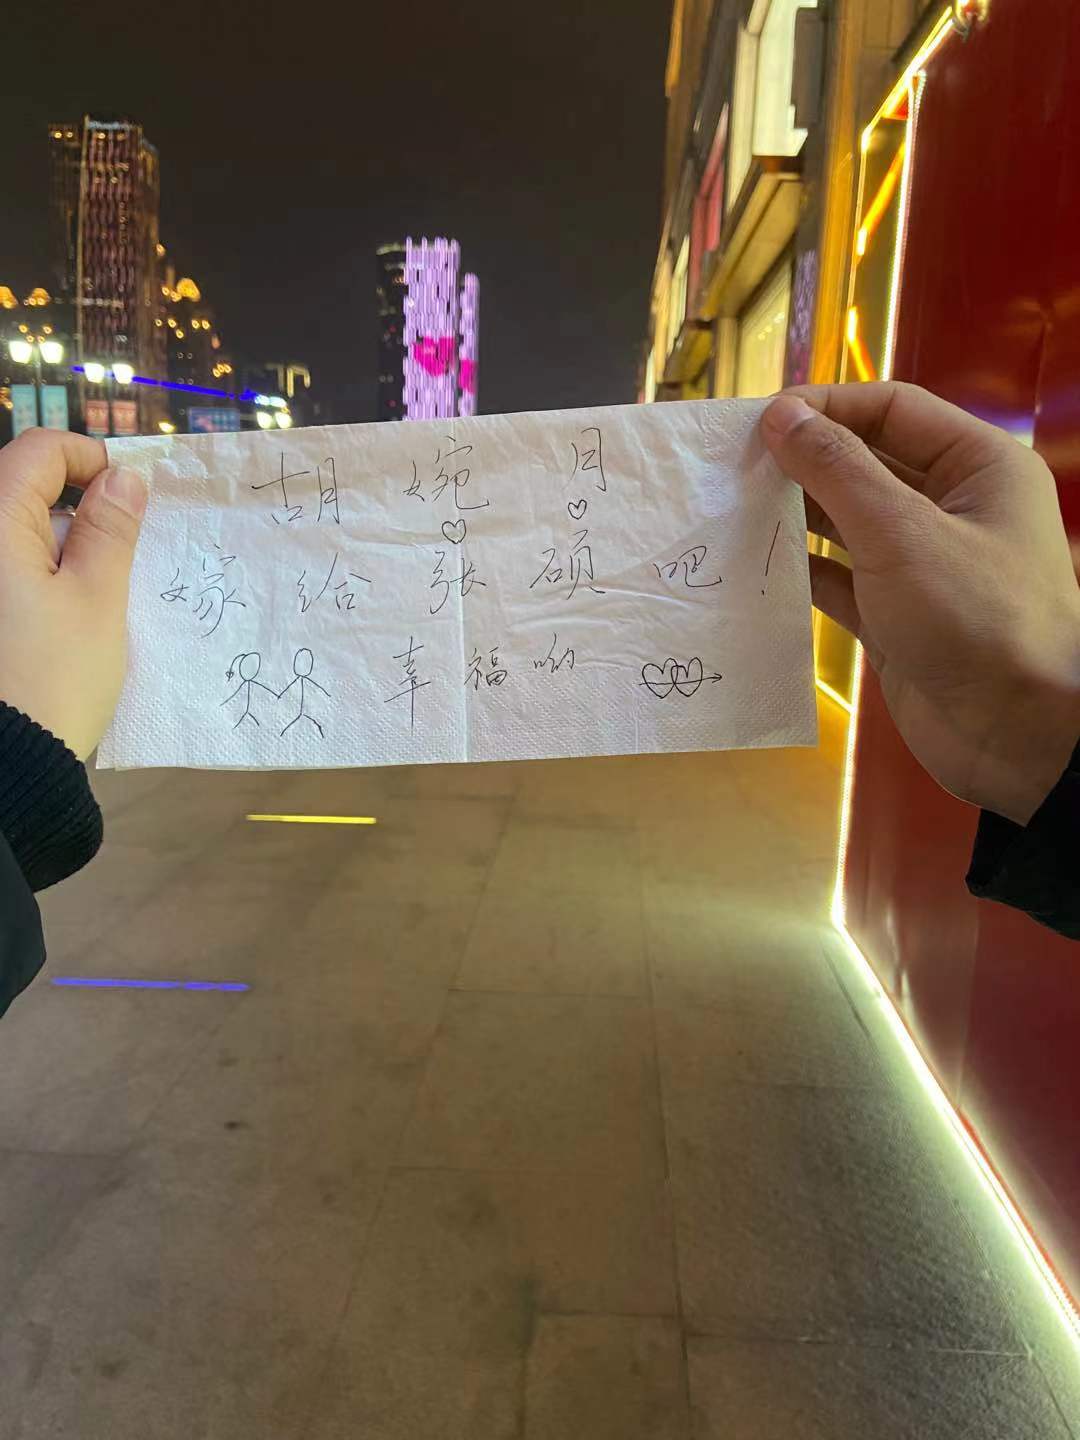 胡婉月
嫁给张硕吧！
幸福哟